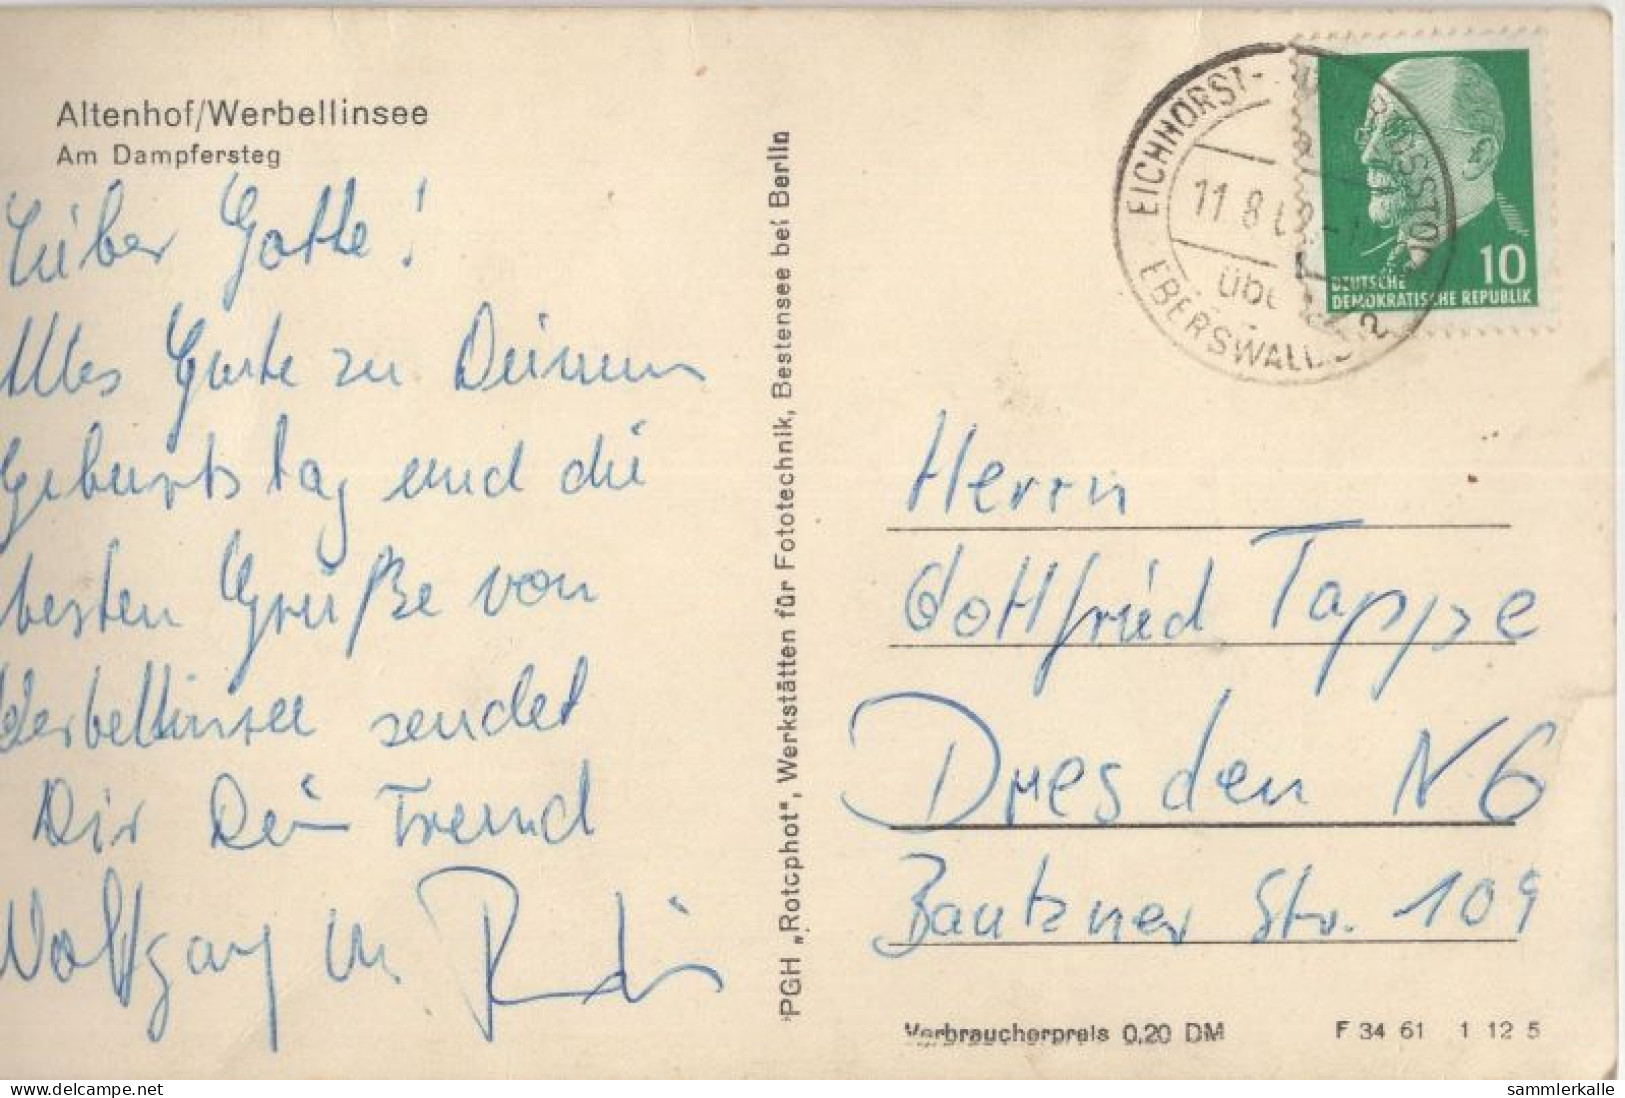 Altenhof/Werbellinsee
Am Dampfersteg
Lieber Gotte!
Alles Gute zu Deinem
Geburtstag und die
besten Grüße von
Werbellinsee sendet
Dir Dein Freund
Wolfgang
PGH „Rotophot", Werkstätten für Fototechnik, Bestensee bei Berlin
EICHHORST-
11.8.6
über
EBERSWALDE 2
10
DEUTSCHE
DEMOKRATISCHE REPUBLIK
Herrn
Gottfried Tappe
Dresden N 6
Bautzner Str. 109
Verbraucherpreis 0,20 DM
F 34 61 1 12 5
www.delcampe.net
sammlerkalle